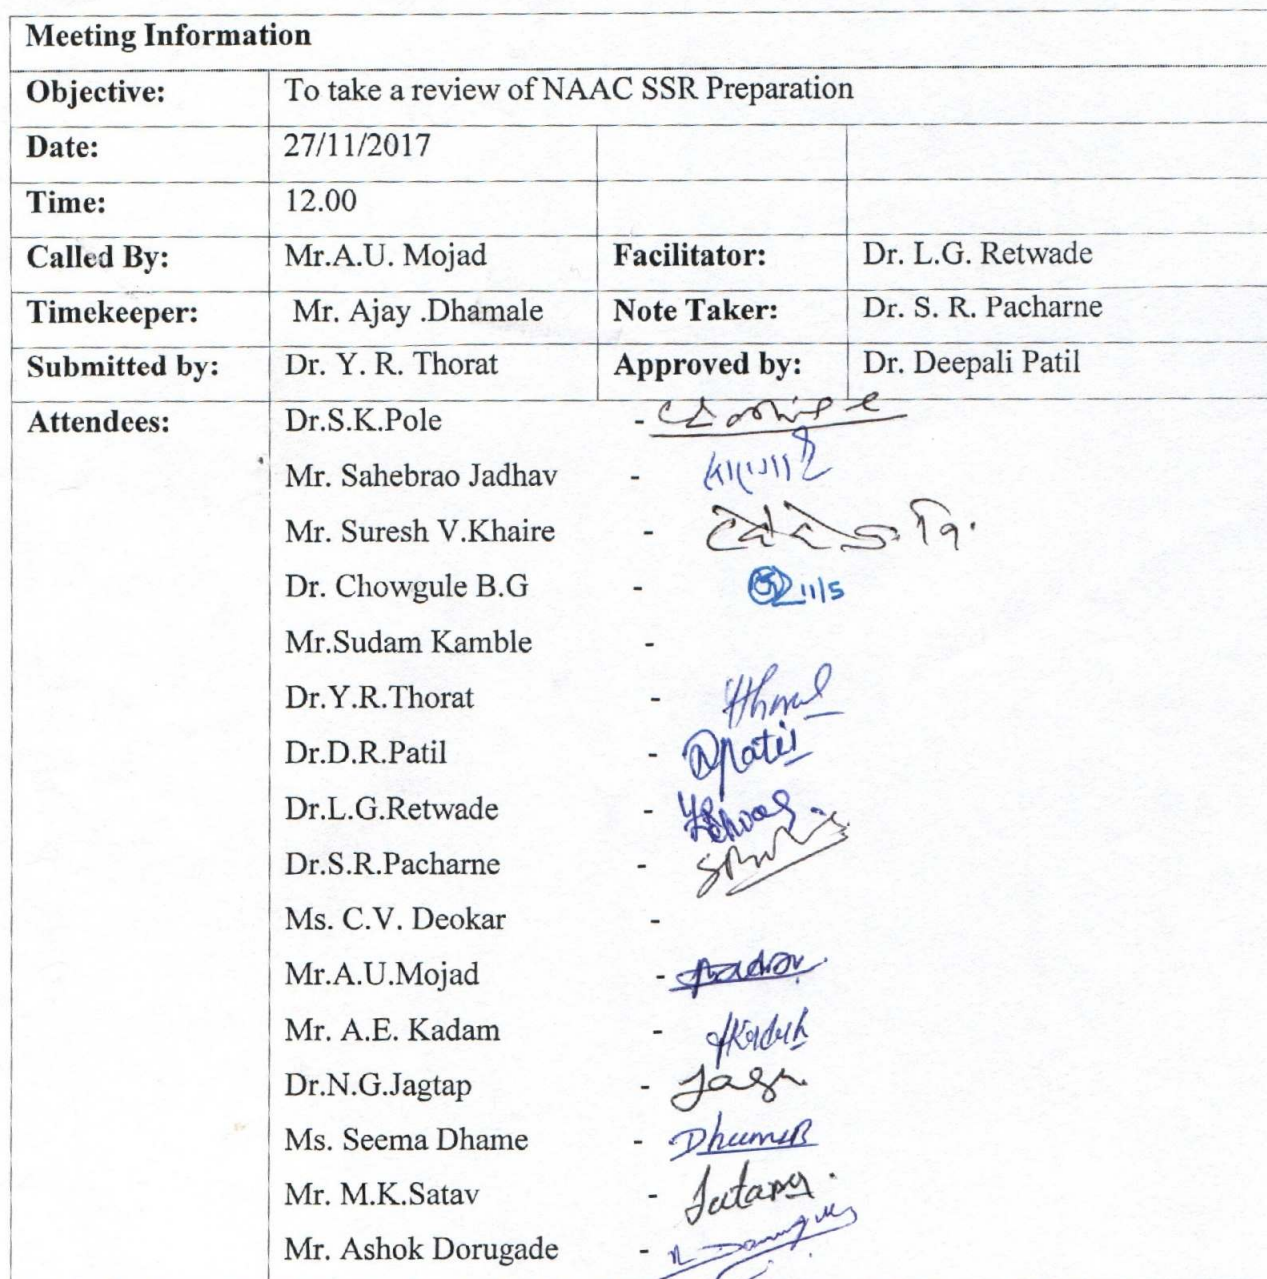 Meeting Information
Objective: To take a review of NAAC SSR Preparation
Date: 27/11/2017
Time: 12.00
Called By: Mr.A.U. Mojad Facilitator: Dr. L.G. Retwade
Timekeeper: Mr. Ajay .Dhamale Note Taker: Dr. S. R. Pacharne
Submitted by: Dr. Y. R. Thorat Approved by: Dr. Deepali Patil
Attendees: Dr.S.K.Pole -
Mr. Sahebrao Jadhav -
Mr. Suresh V.Khaire -
Dr. Chowgule B.G - 11/5
Mr.Sudam Kamble -
Dr.Y.R.Thorat -
Dr.D.R.Patil - DPatil
Dr.L.G.Retwade -
Dr.S.R.Pacharne -
Ms. C.V. Deokar -
Mr.A.U.Mojad -
Mr. A.E. Kadam -
Dr.N.G.Jagtap -
Ms. Seema Dhame -
Mr. M.K.Satav -
Mr. Ashok Dorugade -